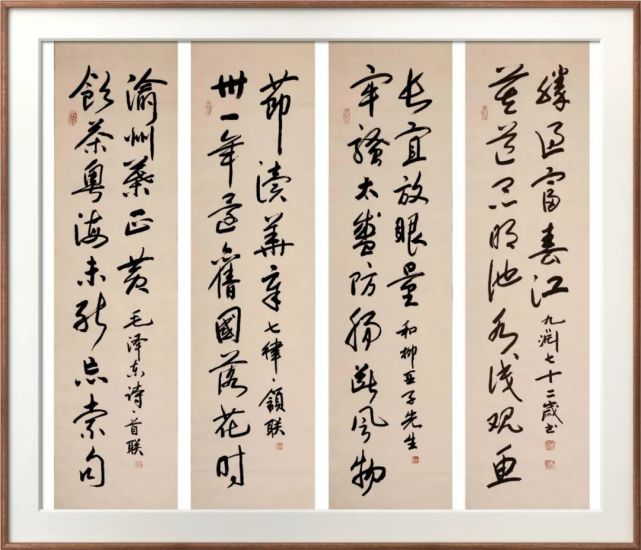 飲茶粤海未能忘索句
渝州葉正黄
毛泽东诗·首联
卅一年還舊國落花时
節讀華章
七律·領联
牢骚太盛防腸断风物
长宜放眼量
和柳亚子先生
莫道昆明池水浅观鱼
勝过富春江
九渊七十二岁书